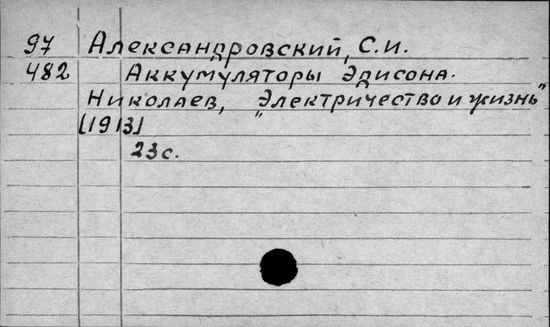 97 Александровский, С.И.
482 Аккумуляторы Эдисона.
Николаев, "Электричество и жизнь"
[1913]
23с.